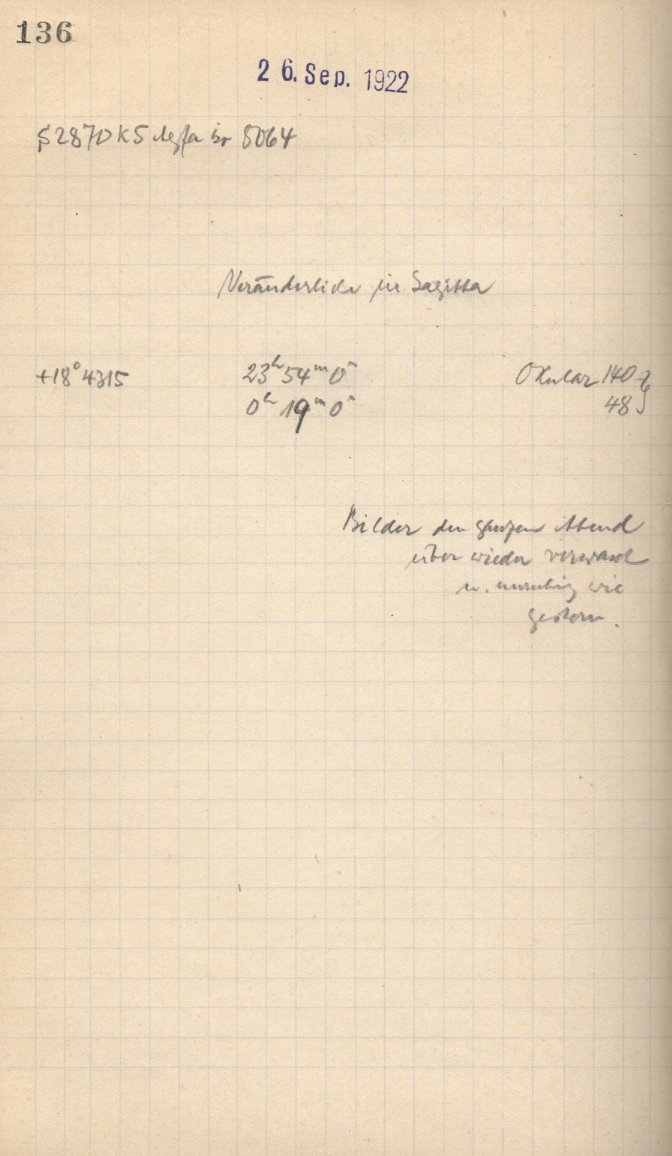 136
26. Sep. 1922
S 2870 K5 Agfa iso 5064
Veränderliche in Sagitta
+18° 4315 23h 54m 0s Okular 140
0h 19m 0s 48
Bilder den ganzen Abend
über wieder verwasch
u. unruhig wie
gestern.